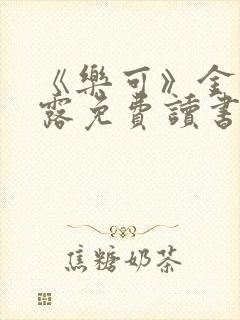 《樂可》金
露免費讀書
焦糖奶茶